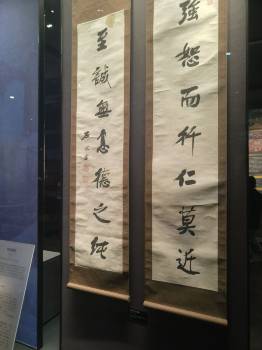 強恕而行仁莫近
至誠無息德之純